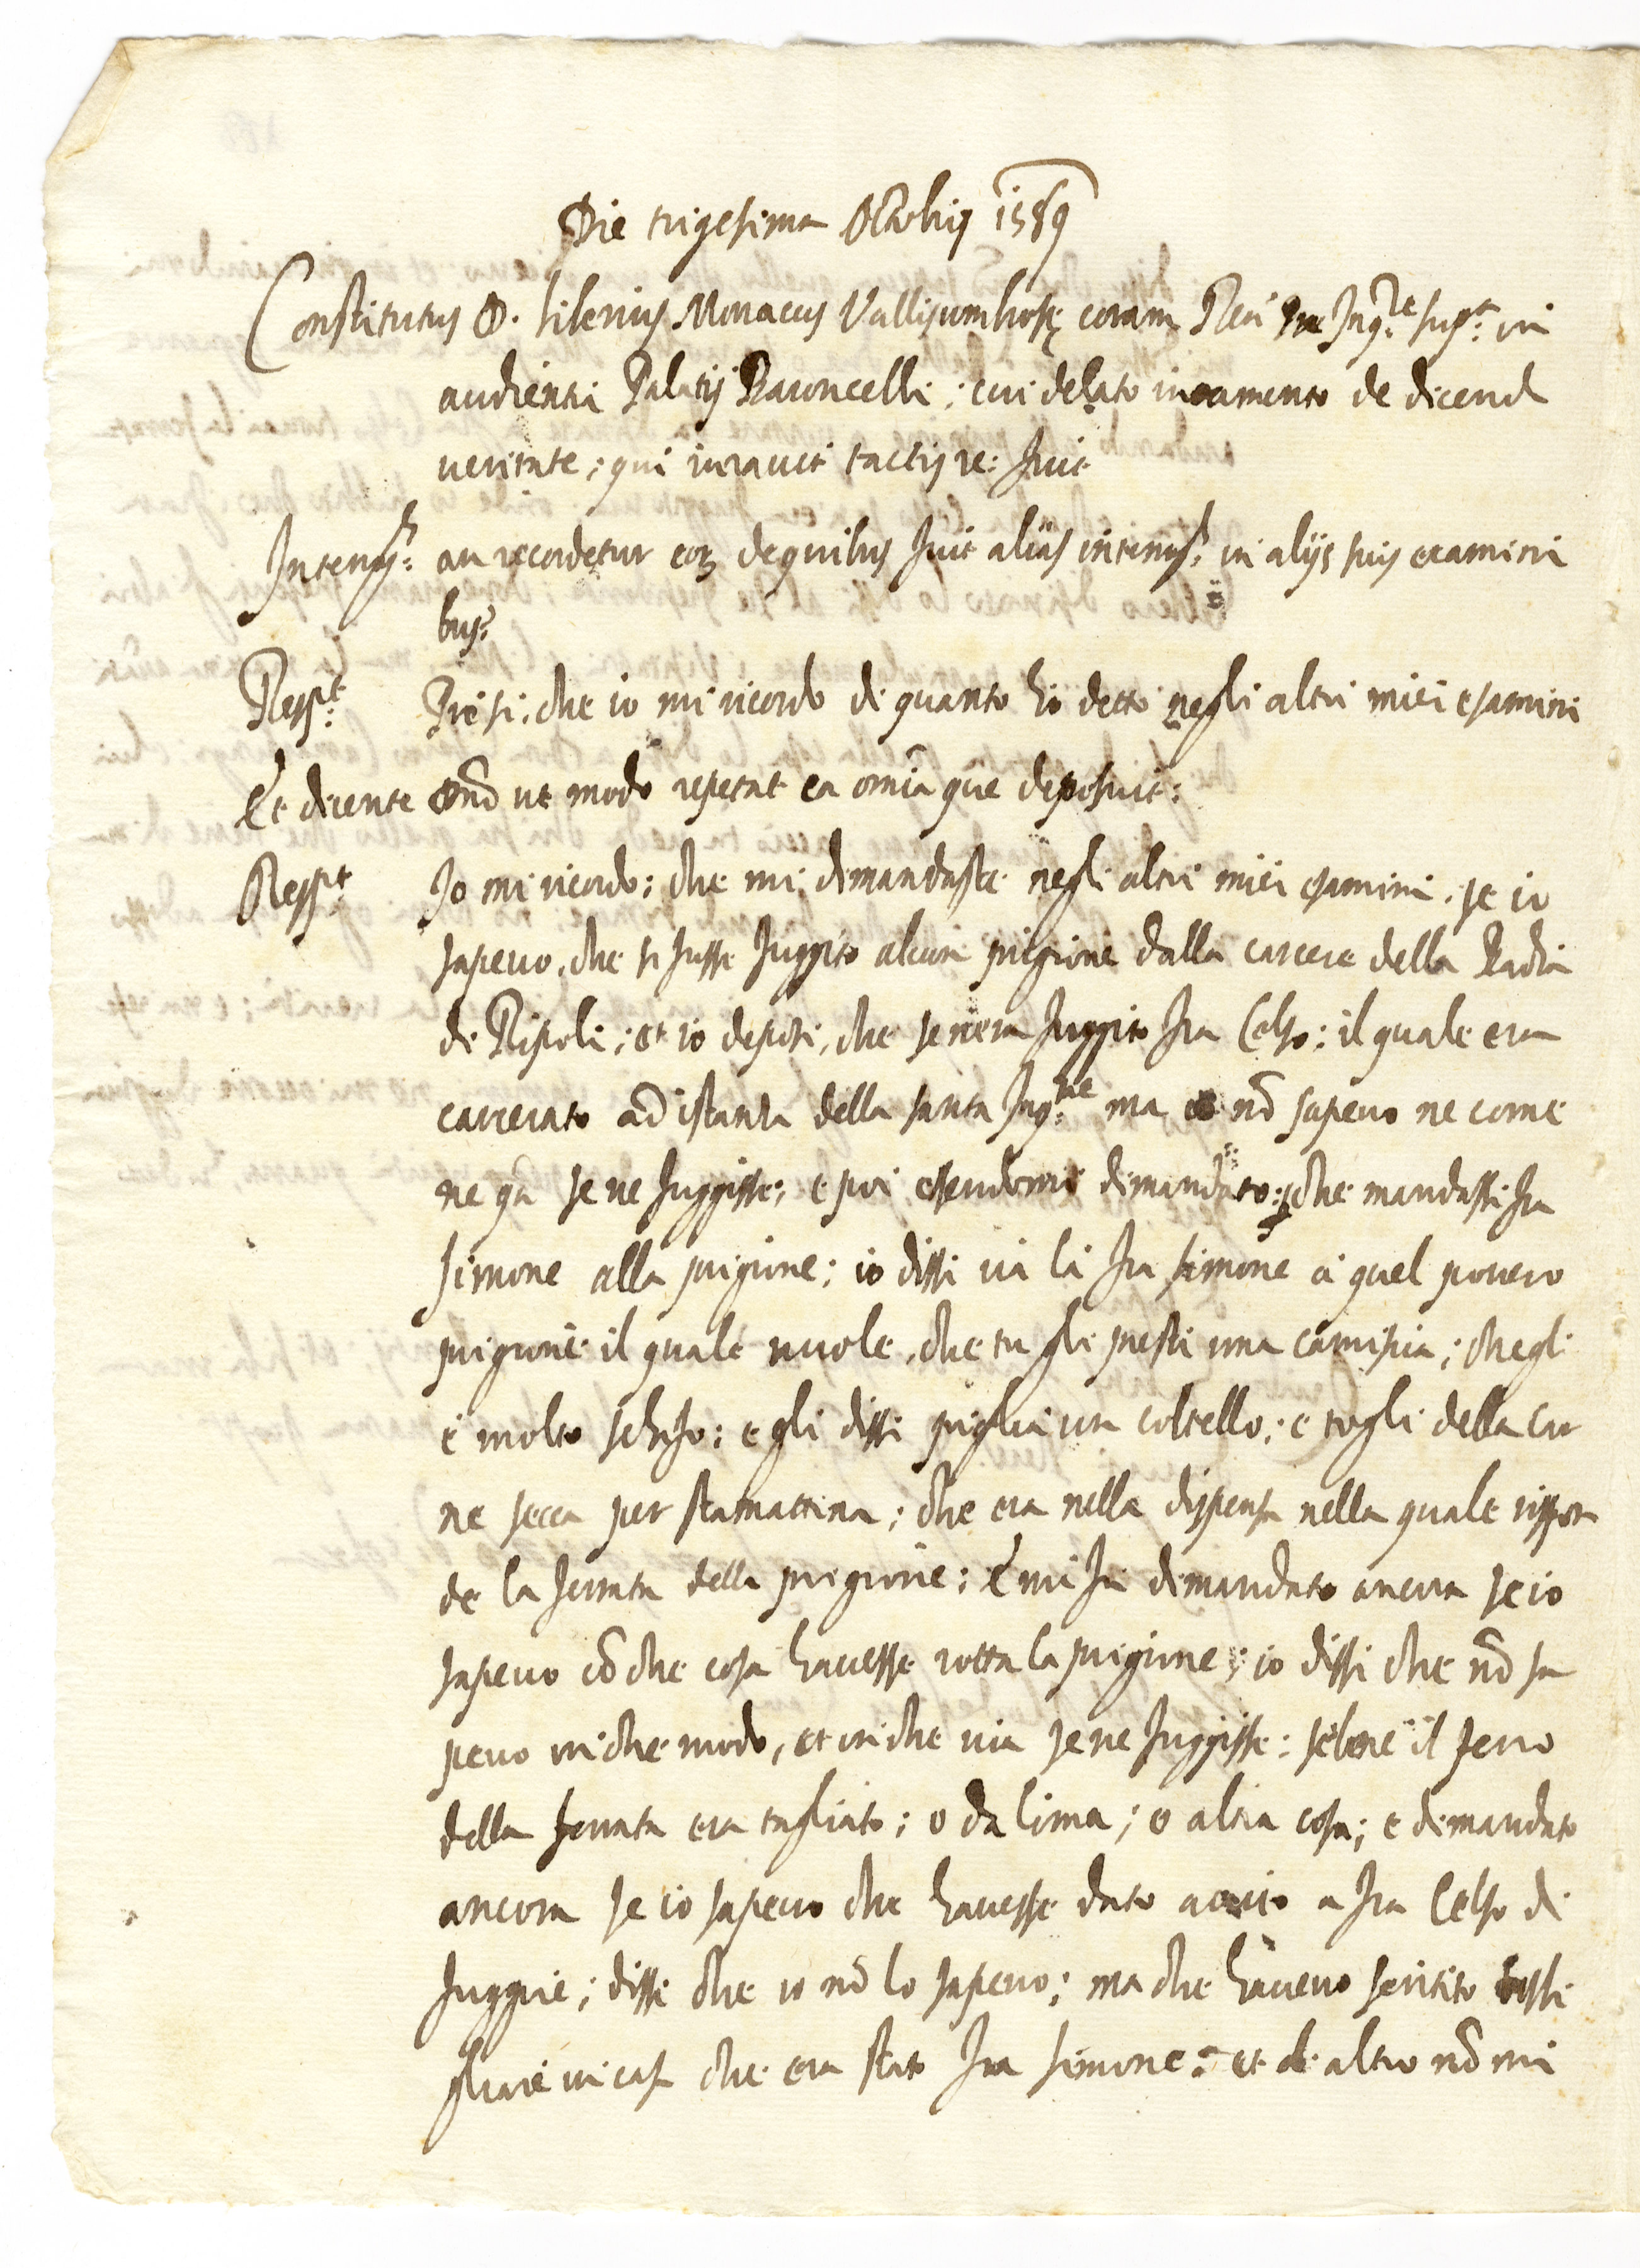 Die trigesima Octobris 1589
Constitutus D. Silerius Monacus Vallisumbrosę coram R. P. Inq.re sup.to in
audientia Palatij Baroncelli; cui delato iuramento de dicend
ueritate; qui iurauit tactis re: fuit
Interrog.s an recordetur eor de quibus fuit alias interrog.s in alijs suis examini
bus?
Resp.t Pre si; che io mi ricordo di quanto hò detto negli altri miei esamini
Et dicente Dnō ut modo repetat ea omīa que deposuit:
Resp.t Io mi ricordo; che mi dimandaste negli altri miei esamini. se io
sapeuo, che si fusse fuggito alcun prigione dalla carcere della Badia
di Ripoli; et io deposi, che se n'era fuggito fra Celso: il quale era
carcerato ad istanza della santa Inq.ne ma nō sapeuo ne come
ne q̃n se ne fuggisse; e poi essendomi dimandato: che mandassi fra
Simone alla prigione; io dissi uà là fra Simone à quel pouero
prigione il quale uuole, che tu gli presti una camisia; ch'egli
è molto schifo: e gli dissi piglia un coltello; e togli della car
ne secca per stamattina; che era nella dispensa nella quale rispon
de la ferrata della prigione: E mi fu dimandato ancora se io
sapeuo cō che cosa hauesse rotta la prigione; io dissi che nō sa
peuo in che modo, et in che uia se ne fuggisse: sebene il ferro
della ferrata era tagliato; o da lima; o altra cosa; e dimandato
ancora se io sapeuo che hauesse dato aiuto a fra Celso di
fuggire; dissi che io nō lo sapeuo; ma che haueuo sentito bisbi
gliare in casa che era stato fra Simone: et di altro nō mi